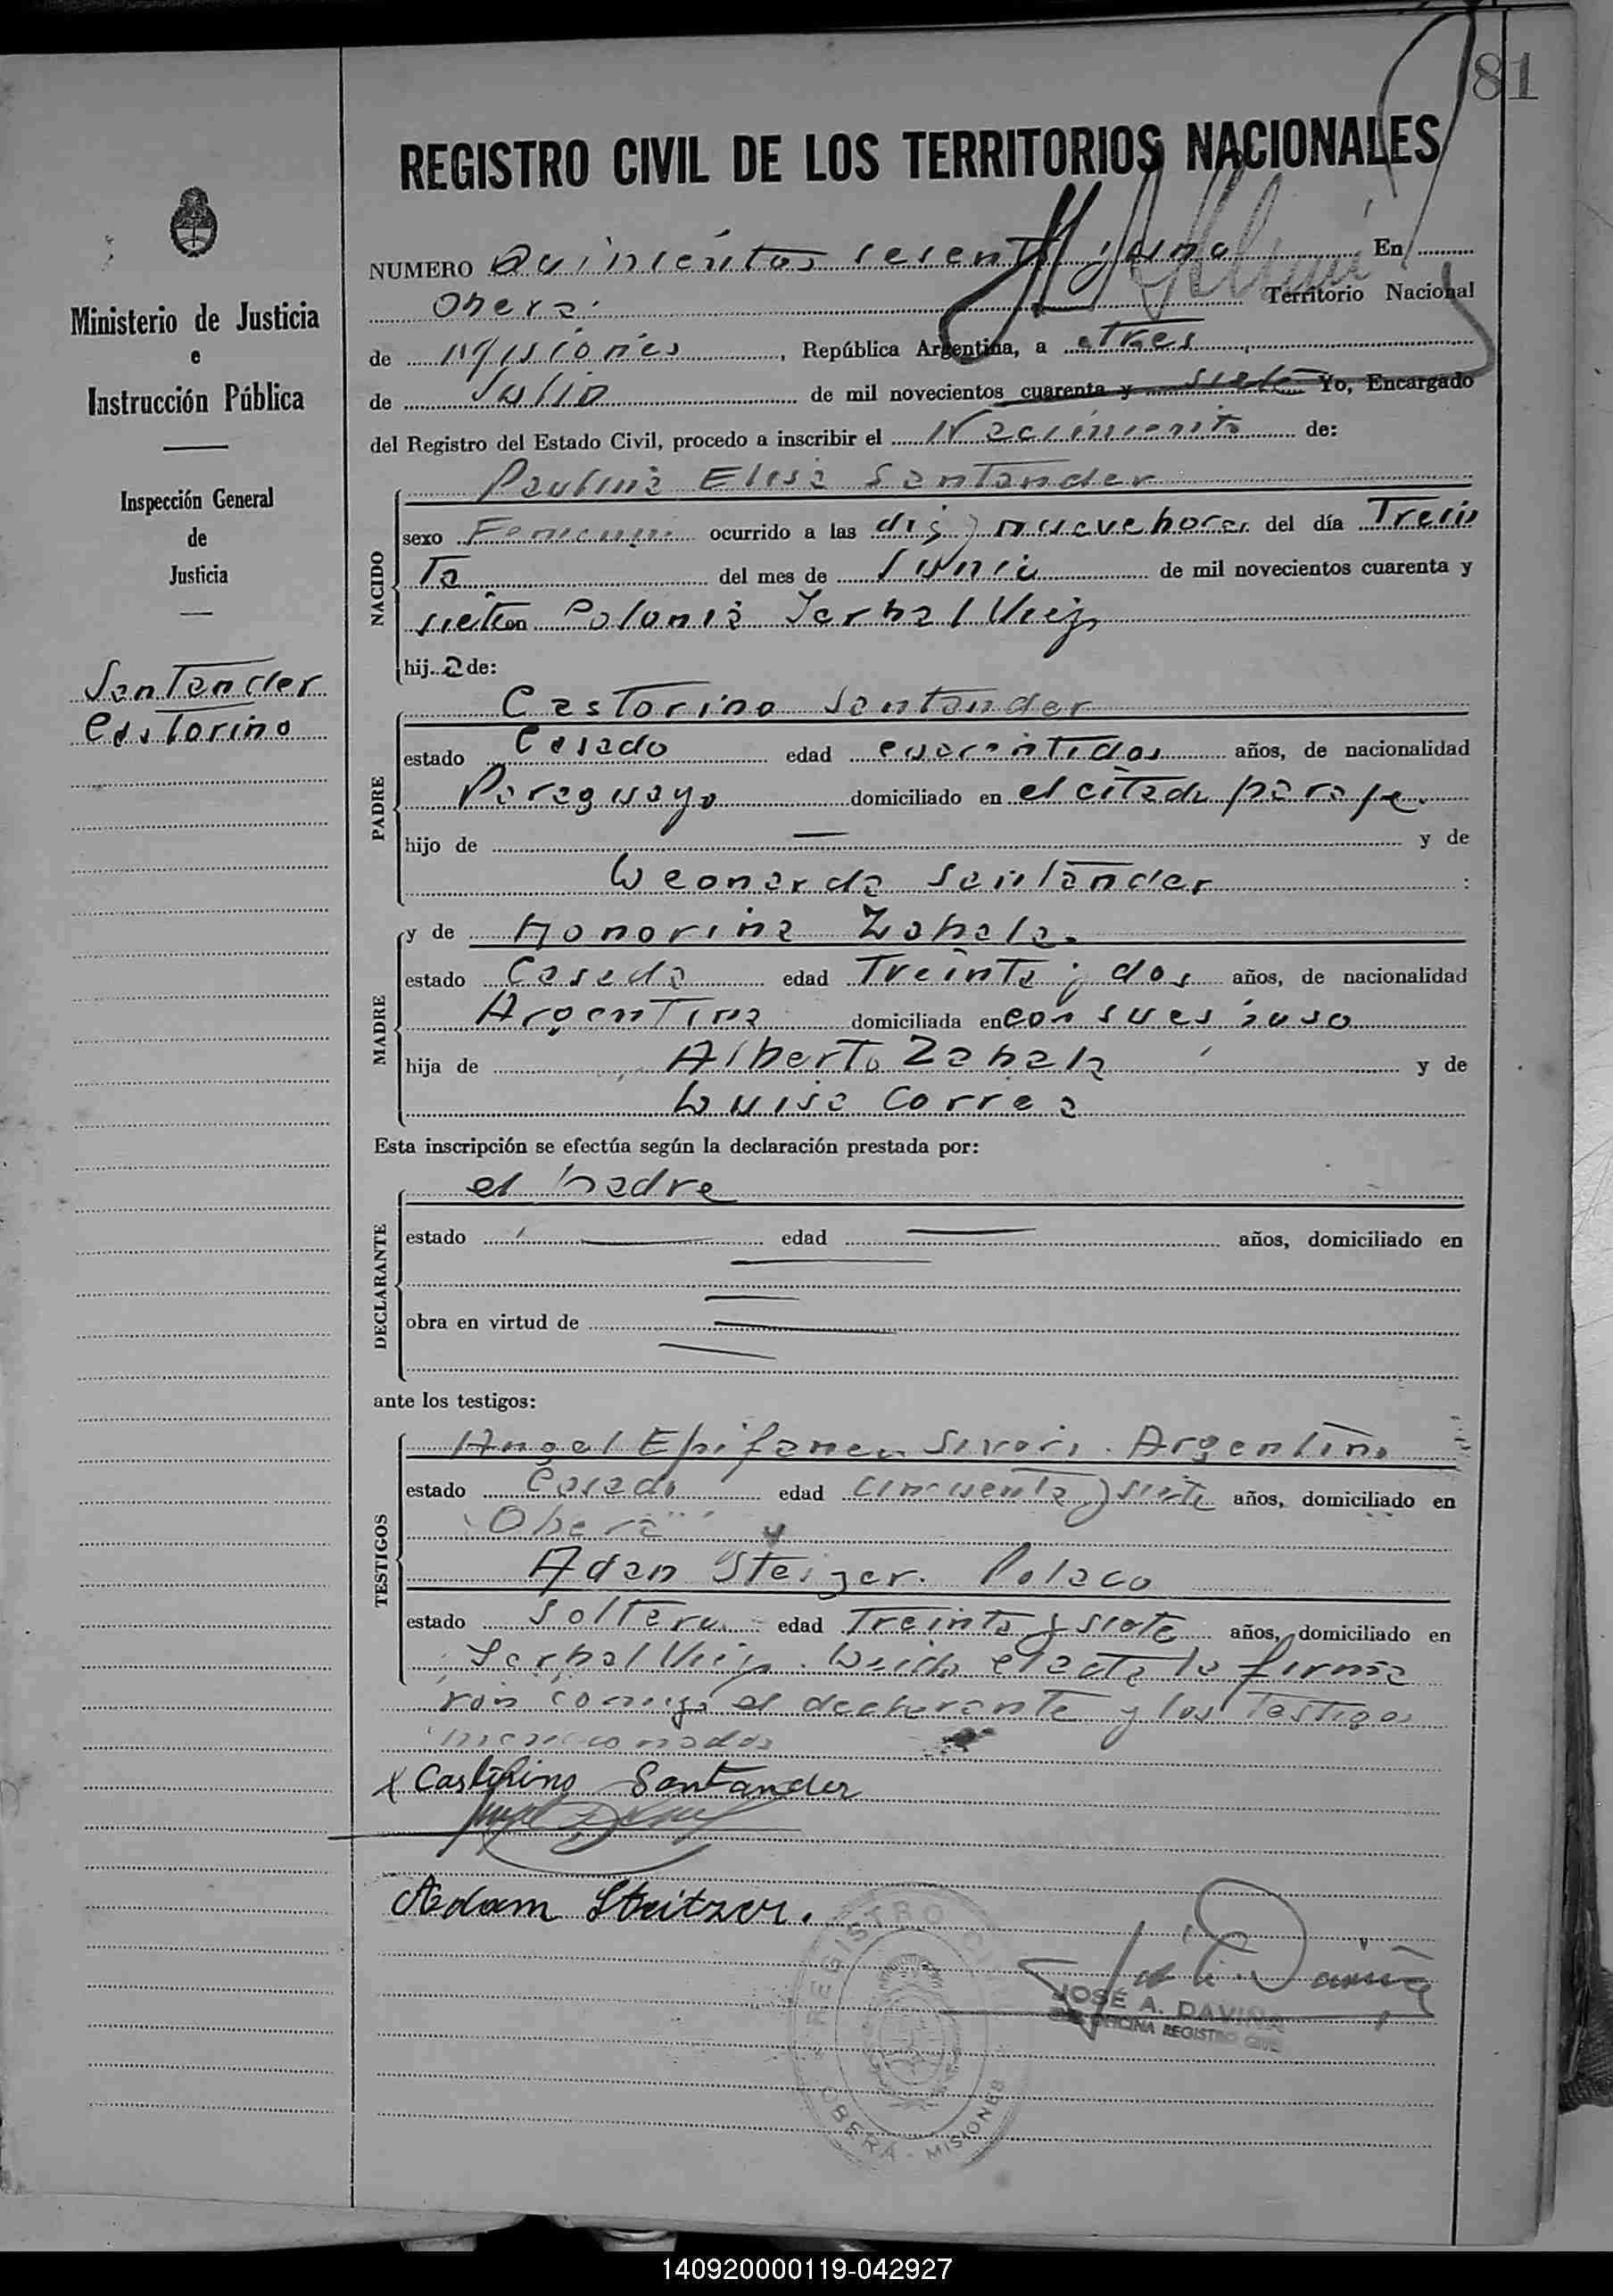 81
REGISTRO CIVIL DE LOS TERRITORIOS NACIONALES
NUMERO Quinientos sesenta y uno En
Oberá. Territorio Nacional
de Misiones, República Argentina, a tres
de Julio de mil novecientos cuarenta y siete Yo, Encargado
del Registro del Estado Civil, procedo a inscribir el Nacimiento de:
Ministerio de Justicia
e
Instrucción Pública
Inspección General
de
Justicia
Santander
Castorino
NACIDO
Paulina Elisa Santander
sexo Femenino ocurrido a las diez y nueve horas del día Trein
Ta del mes de Junio de mil novecientos cuarenta y
siete en Colonia Yerbal Viejo
hija de:
PADRE
Castorino Santander
estado Casado edad cuarentidos años, de nacionalidad
Paraguayo domiciliado en el citado paraje.
hijo de — y de
Leonarda Santander
MADRE
y de Honorina Zabala.
estado Casada edad Treinta y dos años, de nacionalidad
Argentina domiciliada en con su esposo
hija de Alberto Zabala y de
Luisa Correa
Esta inscripción se efectúa según la declaración prestada por:
DECLARANTE
el padre
estado — edad — años, domiciliado en
obra en virtud de —
ante los testigos:
TESTIGOS
Angel Epifaneo Sivori. Argentino
estado Casado edad cincuenta y siete años, domiciliado en
Oberá y
Adan Steizer. Polaco
estado Soltero edad Treinta y siete años, domiciliado en
Yerbal Viejo. Leida el acta la firma
ron comigo el declarante y los Testigos
mencionados
x Castorino Santander
Adam Steitzer.
REGISTRO CIVIL
OBERÁ - MISIONES
JOSÉ A. DAVIÑA
OFICINA REGISTRO CIVIL
140920000119-042927